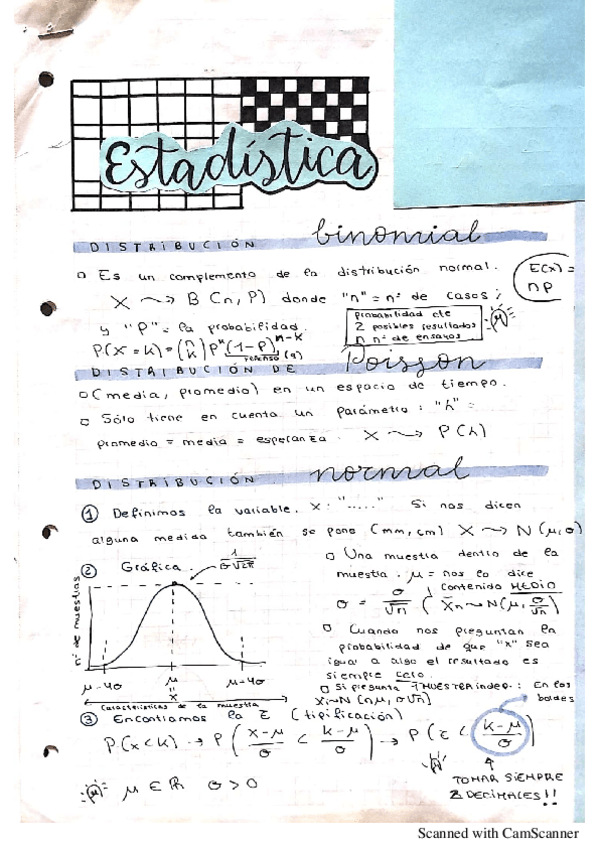 Estadística
DISTRIBUCIÓN binomial
▫ Es un complemento de la distribución normal.
E(x) = np
X ⤳ B (n, P) donde "n" = nº de casos;
y "P" = la probabilidad.
probabilidad cte
2 posibles resultados
n nº de ensayos
P(x = k) = (n k) P^k (1-P)^n-k
(q)
DISTRIBUCIÓN DE Poisson
▫ (media, promedio) en un espacio de tiempo.
▫ Sólo tiene en cuenta un parámetro: "λ" =
promedio = media = esperanza. X ⤳ P(λ)
DISTRIBUCIÓN normal
① Definimos la variable. X: "....." Si nos dicen
alguna medida también se pone (mm, cm) X ⤳ N(μ,σ)
② Gráfica.
1/σ√2π
nº de muestras
μ-4σ μ μ-4σ
"x"
Características de la muestra
▫ Una muestra dentro de la
muestra. μ = nos lo dice
contenido MEDIO
σ = σ/√n ( X̄n ⤳ N(μ, σ/√n)
▫ Cuando nos preguntan la
probabilidad de que "x" sea
igual a algo el resultado es
siempre cero.
▫ Si pregunta 1 MUESTRA indep.: En los
Xi ⤳ N (nμ, σ√n) bordes
③ Encontramos la Z (tipificación)
P(x<k) → P ( x-μ/σ < k-μ/σ ) → P (z < k-μ/σ)
μ ∈ ℝ σ > 0
TOMAR SIEMPRE
2 DECIMALES!!
Scanned with CamScanner